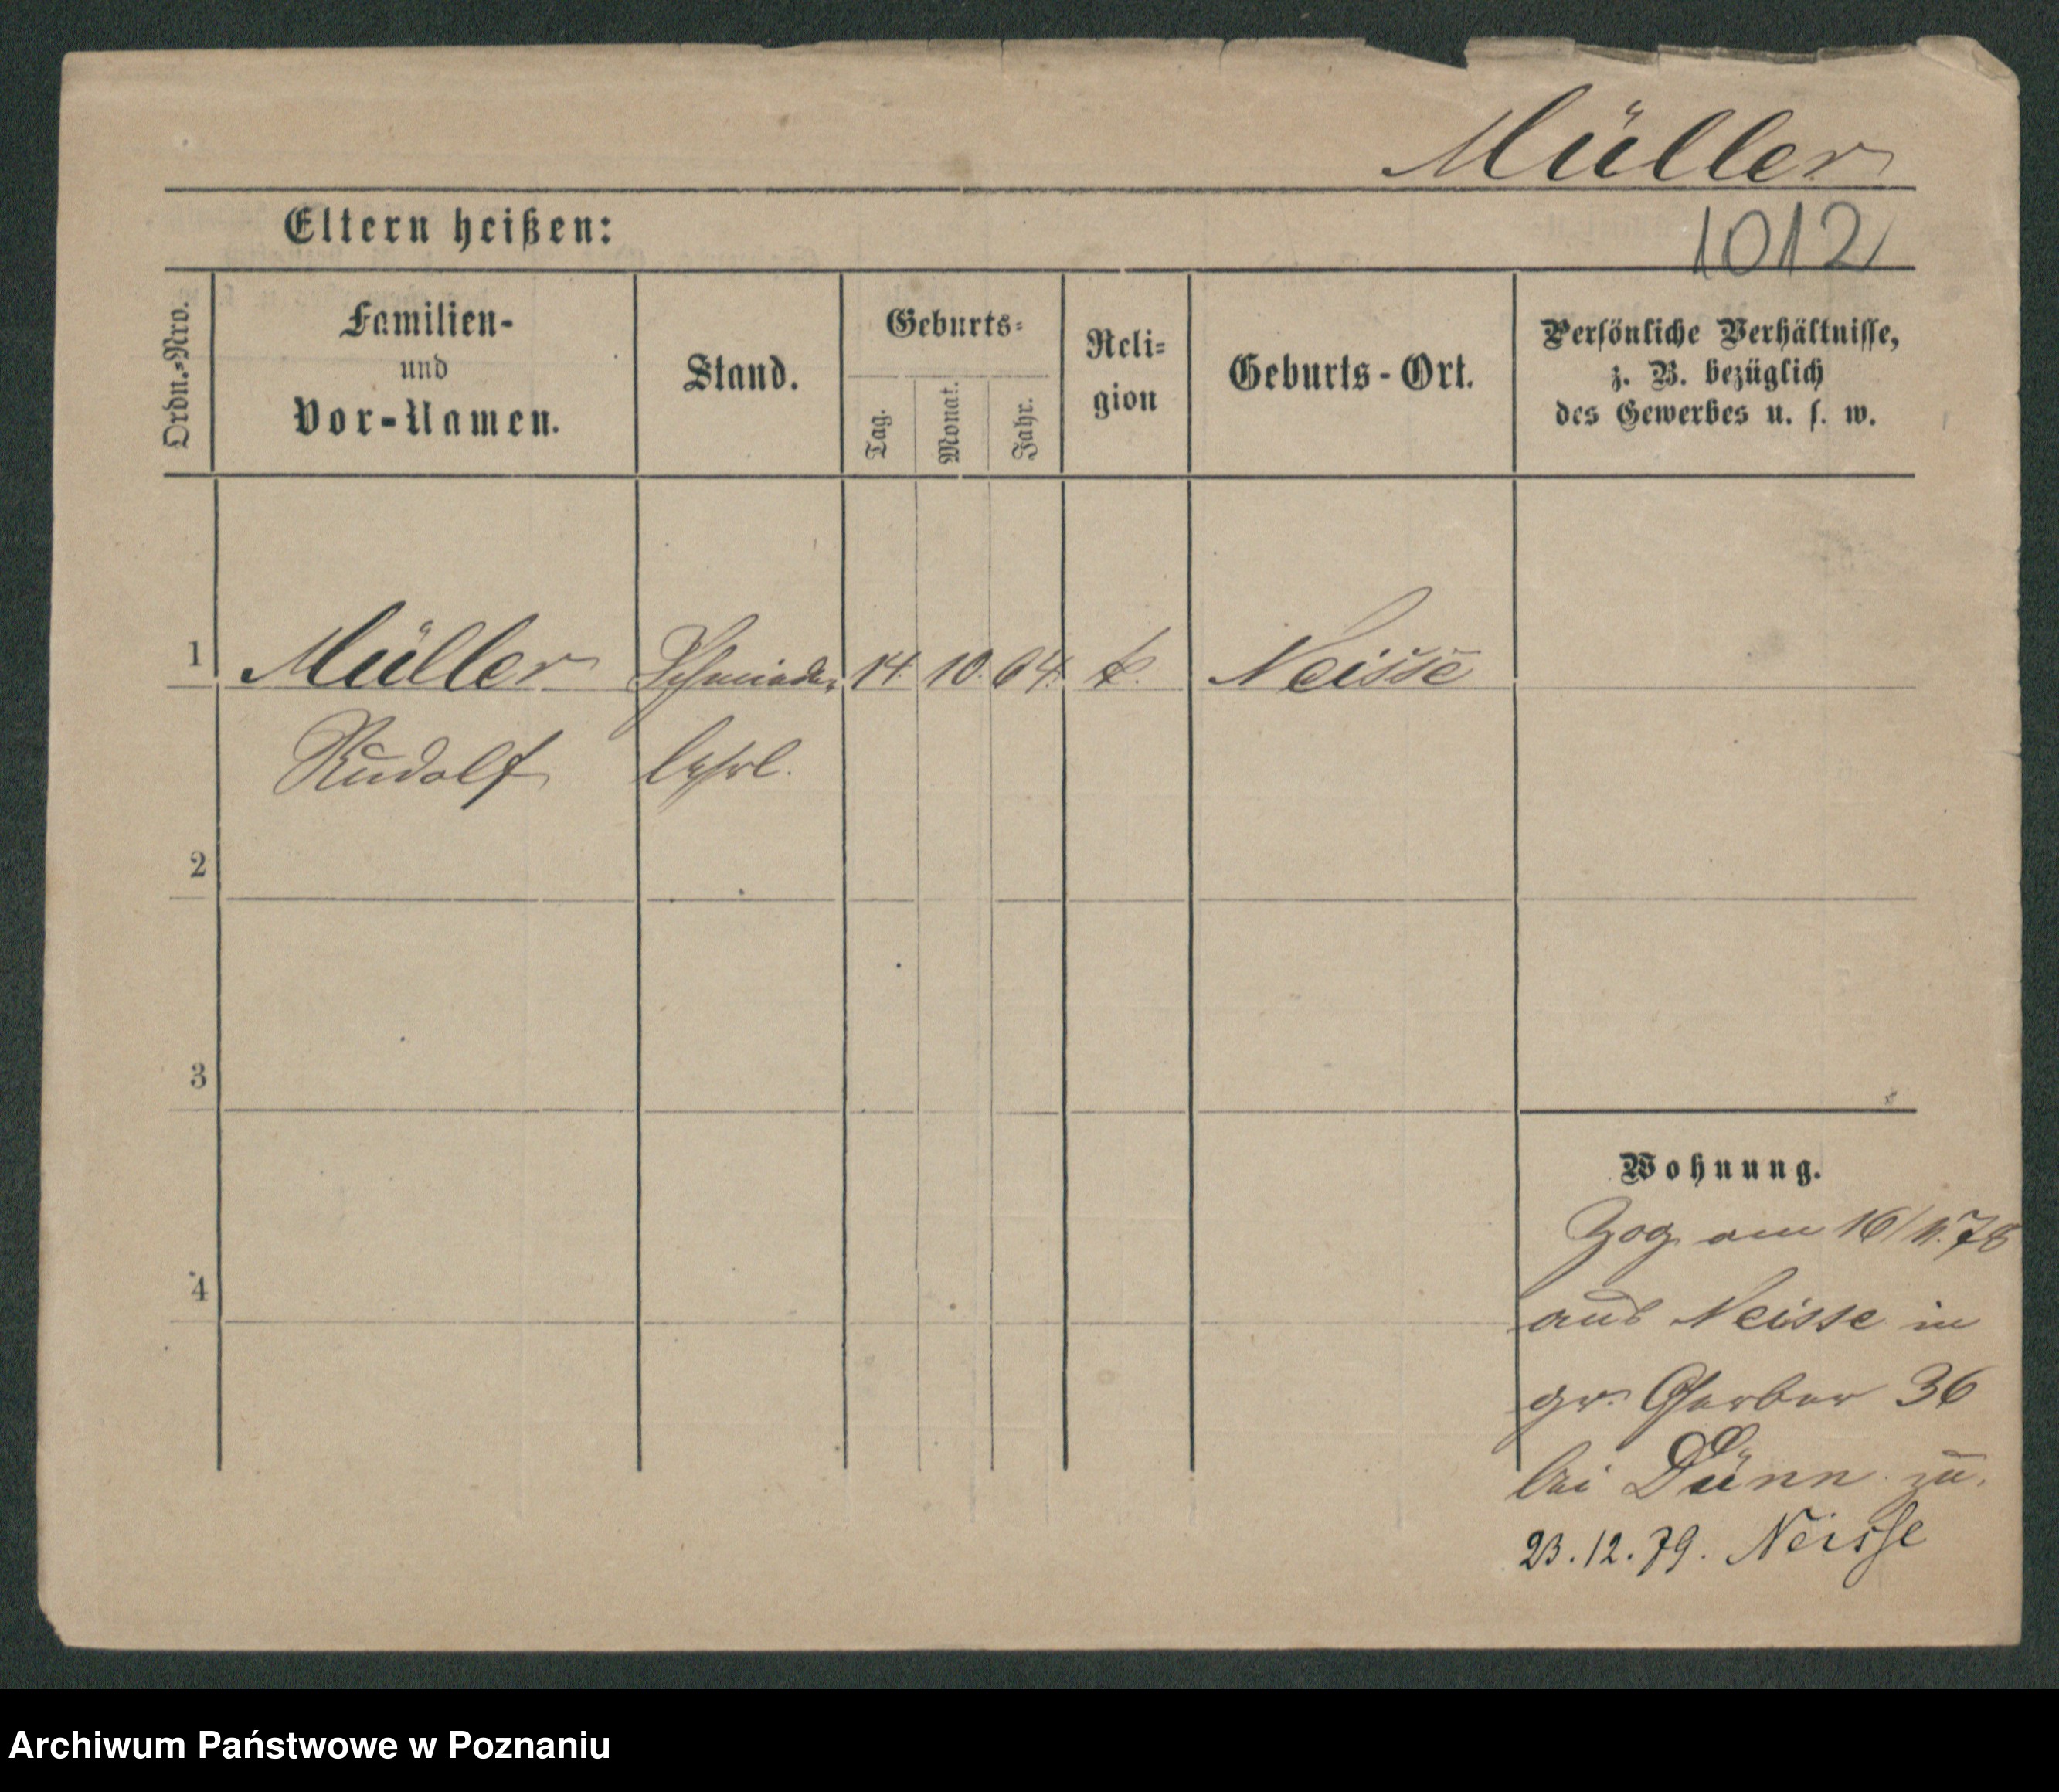 Müller
Eltern heißen:
1012
Ordn.-Nro.
Familien-
und
Vor-Namen.
Stand.
Geburts-
Tag.
Monat.
Jahr.
Reli-
gion
Geburts-Ort.
Persönliche Verhältnisse,
z. B. bezüglich
des Gewerbes u. s. w.
1 Müller 14. 10. 64. k. Neisse
Rudolf lehrl.
2
3
4
Wohnung.
Zog am 16/11.78
aus Neisse in
gr. Gerber 36
bei Dünn zu.
23.12.79. Neisse
Archiwum Państwowe w Poznaniu